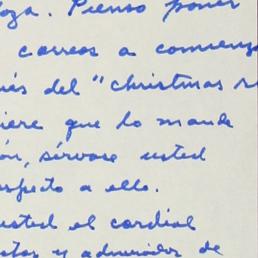 oza. Pienso poner
correos a comienz
és del "christmas r
iere que lo mande
ón, sírvase usted
especto a ello.
usted el cordial
y admirador de